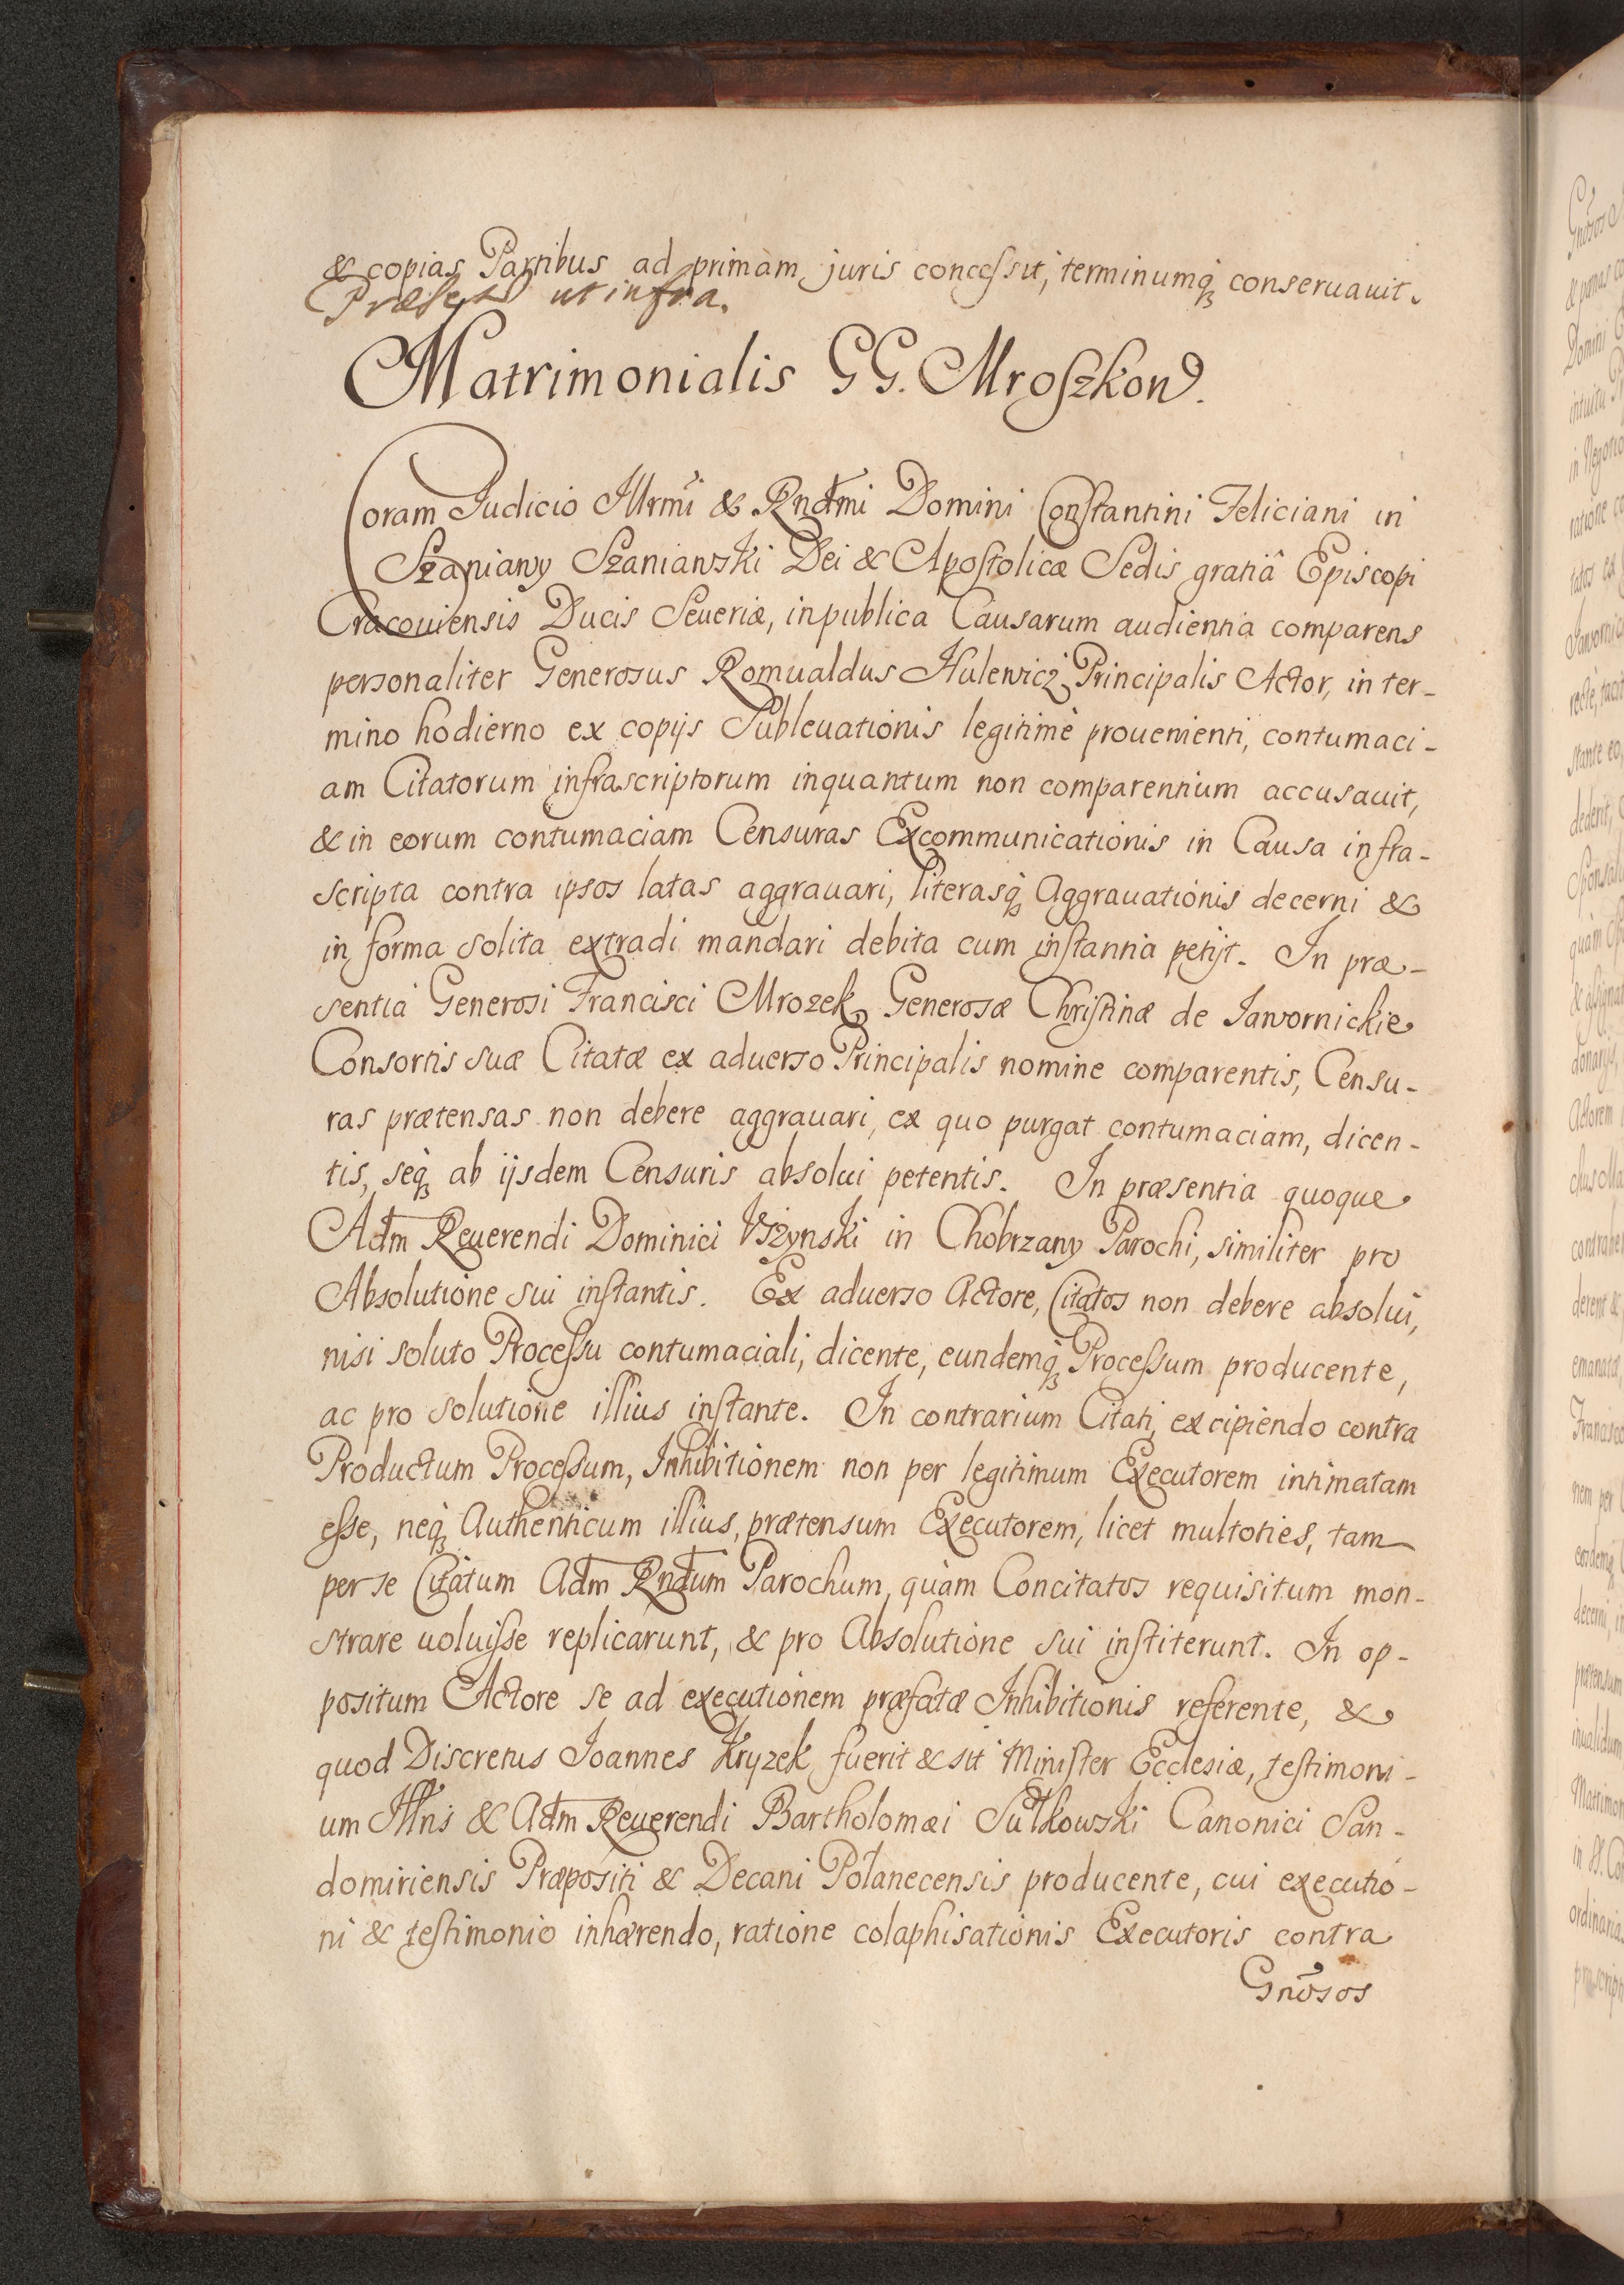 & copias Partibus ad primam juris concessit, terminumq́ conseruauit.
ut infra.
Matrimonialis GG. Mroszkow.
Coram Judicio Illrmi & Rndmi Domini Constantini Feliciani in
Szaniawy Szaniawski Dei & Apostolicæ Sedis gratiâ Episcopi
Cracouiensis Ducis Seueriæ, in publica Causarum audientia comparens
personaliter Generosus Romualdus Hulewicz Principalis Actor, in ter-
mino hodierno ex copijs Subleuationis legitimè prouenienti, contumaci-
am Citatorum infrascriptorum inquantum non comparentium accusauit,
& in eorum contumaciam Censuras Excommunicationis in Causa infra-
scripta contra ipsos latas aggrauari, literasq́ Aggrauationis decerni &
in forma solita extradi mandari debita cum instantia petijt. In præ-
sentia Generosi Francisci Mrozek, Generosæ Christinæ de Jawornickie
Consortis suæ Citatæ ex aduerso Principalis nomine comparentis, Censu-
ras prætensas non debere aggrauari, ex quo purgat contumaciam, dicen-
tis, seq́ ab ijsdem Censuris absolui petentis. In præsentia quoque
Adm Reuerendi Dominici Vszynski in Chobrzany Parochi, similiter pro
Absolutione sui instantis. Ex aduerso Actore, Citatos non debere absolui,
nisi soluto Processu contumaciali, dicente, eundemq́ Processum producente,
ac pro solutione illius instante. In contrarium Citati, excipiendo contra
Productum Processum, Inhibitionem non per legitimum Executorem intimatam
esse, neq́ Authenticum illius, prætensum Executorem, licet multoties, tam
per se Citatum Adm Rndum Parochum, quàm Concitatos requisitum mon-
strare uoluisse replicarunt, & pro Absolutione sui institerunt. In op-
positum Actore se ad executionem præfatæ Inhibitionis referente, &
quod Discretus Joannes Kryzek fuerit & sit Minister Ecclesiæ, testimoni-
um Illris & Adm Reuerendi Bartholomæi Sułkowski Canonici San-
domiriensis Præpositi & Decani Połanecensis producente, cui executio-
ni & testimonio inhærendo, ratione colaphisationis Executoris contra
Gnõsos